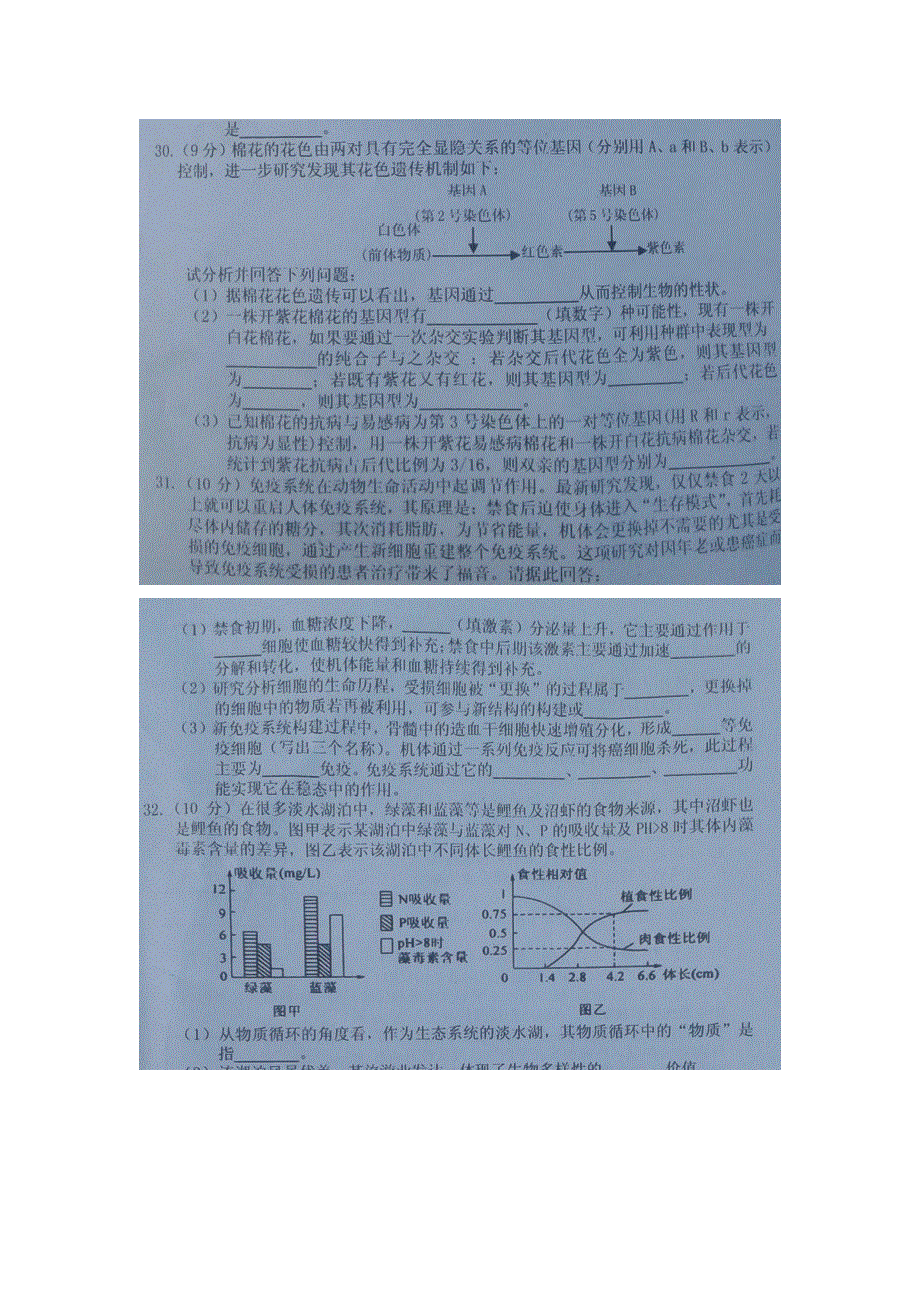 是 。
30.（9分）棉花的花色由两对具有完全显隐关系的等位基因（分别用A、a和B、b表示）
控制，进一步研究发现其花色遗传机制如下：
基因A 基因B
(第2号染色体) (第5号染色体)
白色体
(前体物质) 红色素 紫色素
试分析并回答下列问题：
（1）据棉花花色遗传可以看出，基因通过 从而控制生物的性状。
（2）一株开紫花棉花的基因型有 （填数字）种可能性，现有一株开
白花棉花，如果要通过一次杂交实验判断其基因型，可利用种群中表现型为
的纯合子与之杂交；若杂交后代花色全为紫色，则其基因型
为 ；若既有紫花又有红花，则其基因型为 ；若后代花色
为 ，则其基因型为 。
（3）已知棉花的抗病与易感病为第3号染色体上的一对等位基因(用R和r表示，
抗病为显性)控制，用一株开紫花易感病棉花和一株开白花抗病棉花杂交，若
统计到紫花抗病占后代比例为3/16，则双亲的基因型分别为 。
31.（10分）免疫系统在动物生命活动中起调节作用。最新研究发现，仅仅禁食2天以
上就可以重启人体免疫系统，其原理是：禁食后迫使身体进入“生存模式”，首先耗
尽体内储存的糖分，其次消耗脂肪，为节省能量，机体会更换掉不需要的尤其是受
损的免疫细胞，通过产生新细胞重建整个免疫系统。这项研究对因年老或患癌症而
导致免疫系统受损的患者治疗带来了福音。请据此回答：
（1）禁食初期，血糖浓度下降， （填激素）分泌量上升，它主要通过作用于
细胞使血糖较快得到补充；禁食中后期该激素主要通过加速 的
分解和转化，使机体能量和血糖持续得到补充。
（2）研究分析细胞的生命历程，受损细胞被“更换”的过程属于 ，更换掉
的细胞中的物质若再被利用，可参与新结构的构建或 。
（3）新免疫系统构建过程中，骨髓中的造血干细胞快速增殖分化，形成 等免
疫细胞（写出三个名称）。机体通过一系列免疫反应可将癌细胞杀死，此过程
主要为 免疫。免疫系统通过它的 、 、 功
能实现它在稳态中的作用。
32.（10 分）在很多淡水湖泊中，绿藻和蓝藻等是鲤鱼及沼虾的食物来源，其中沼虾也
是鲤鱼的食物。图甲表示某湖泊中绿藻与蓝藻对N、P的吸收量及PH>8时其体内藻
毒素含量的差异，图乙表示该湖泊中不同体长鲤鱼的食性比例。
吸收量(mg/L)
12
9
6
3
0
绿藻 蓝藻
N吸收量
P吸收量
pH>8时
藻毒素含量
图甲
食性相对值
1
0.75
0.5
0.25
0 1.4 2.8 4.2 6.6 体长(cm)
植食性比例
肉食性比例
图乙
（1）从物质循环的角度看，作为生态系统的淡水湖，其物质循环中的“物质”是
指 。